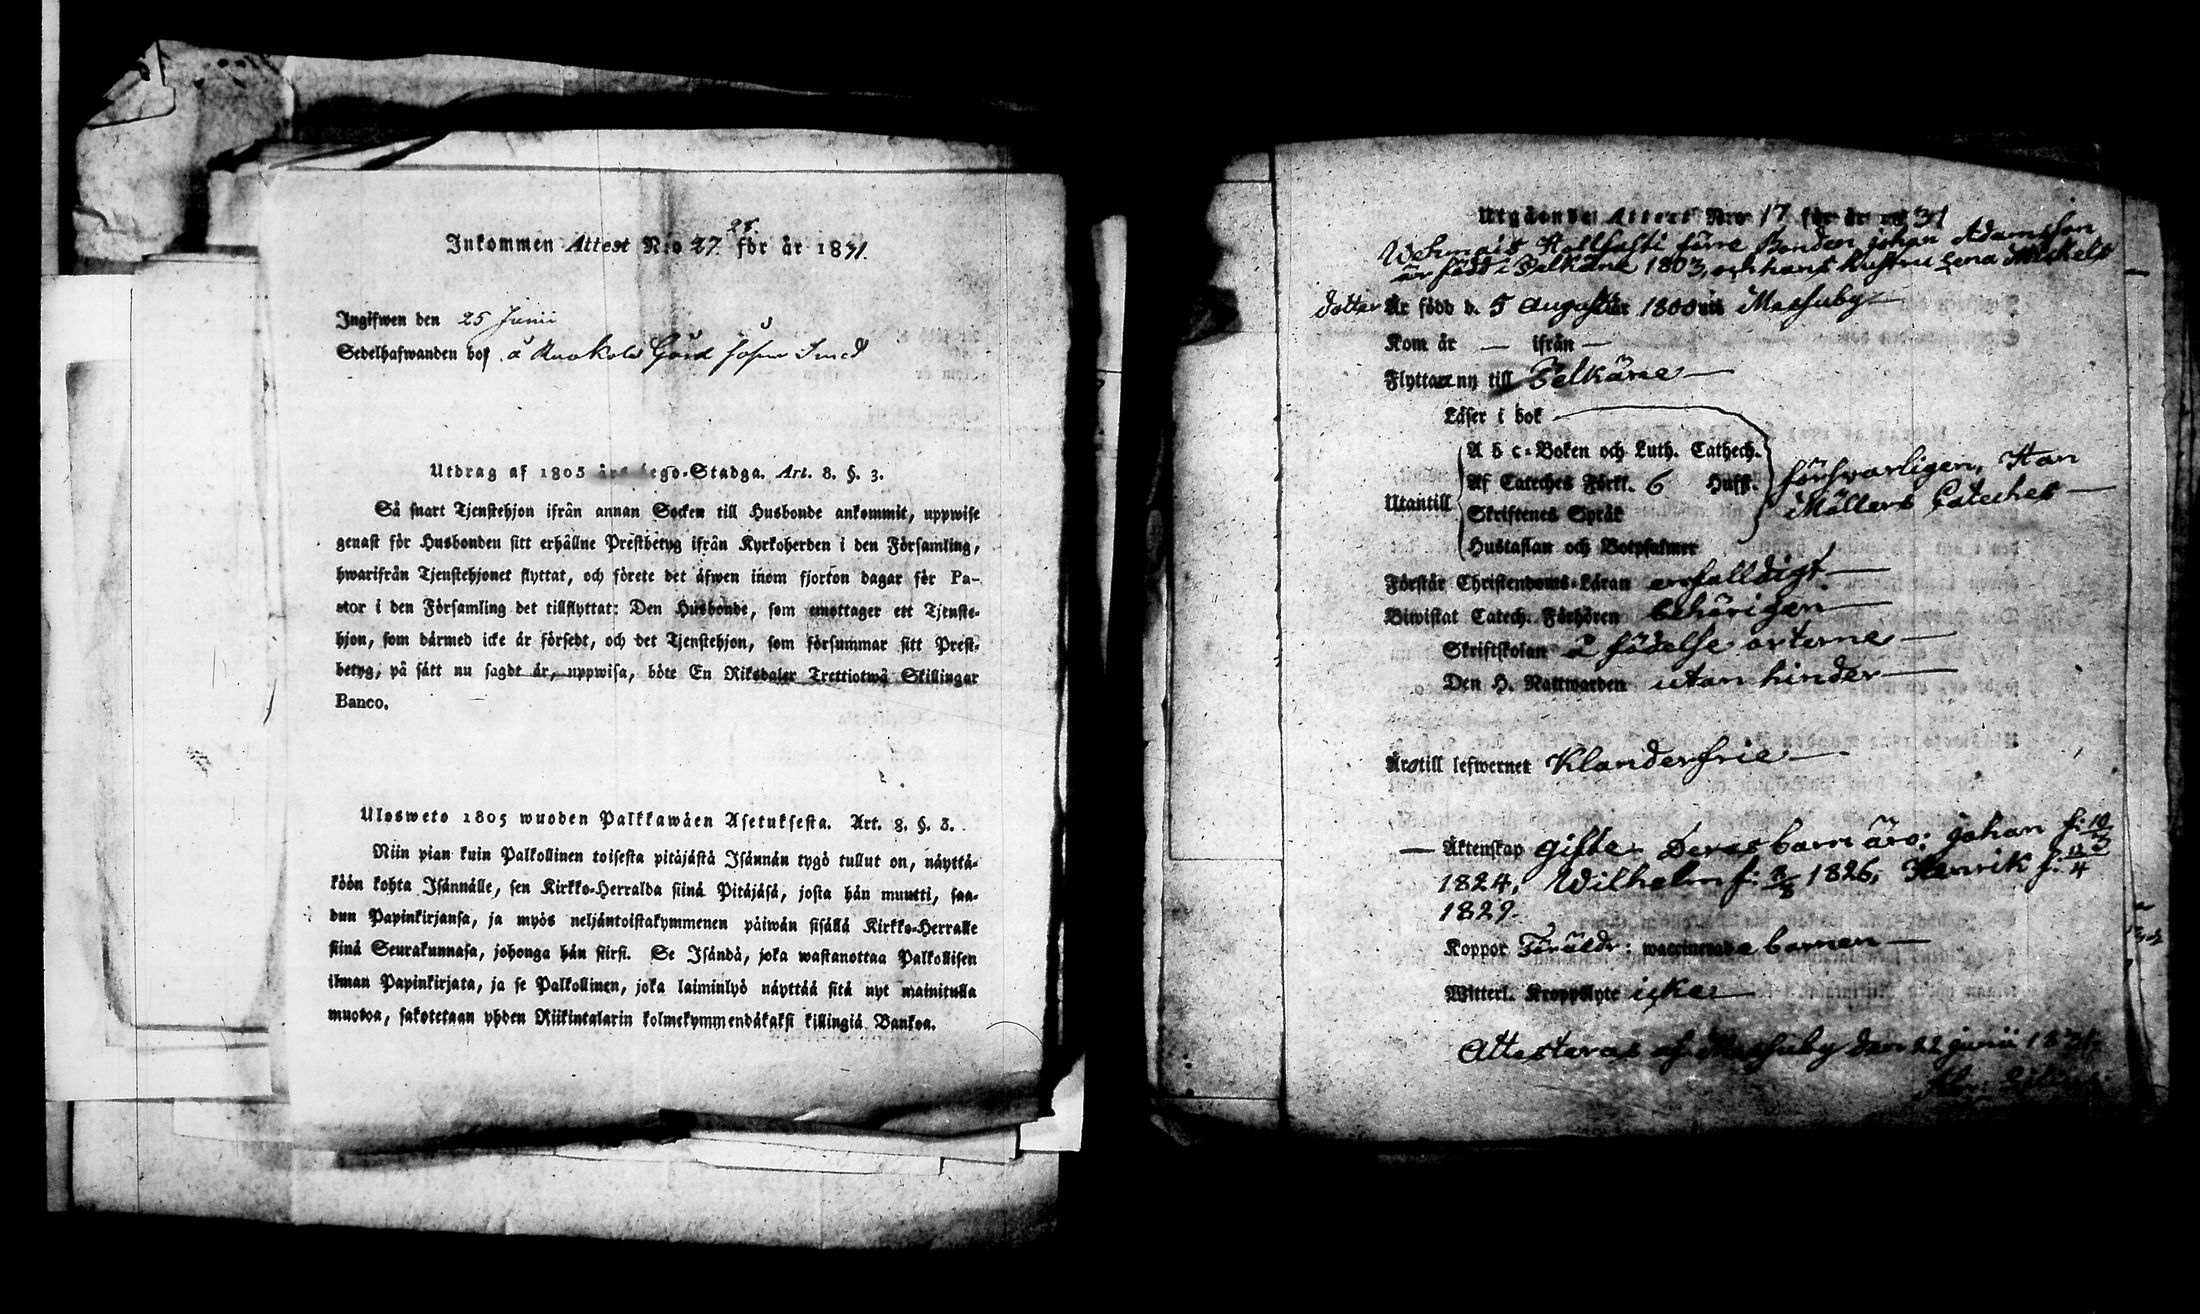 Inkommen Attest N:o 27. för år 1831.
28.
Ingifwen den 25 Junii
Sedelhafwanden bor å Ruokola Gård såsom Smed
Utdrag af 1805 års Lego-Stadga. Art. 8. §. 3.
Så snart Tjenstehjon ifrån annan Socken till Husbonde ankommit, uppwise
genast för Husbonden sitt erhållne Prestbetyg ifrån Kyrkoherden i den Församling,
hwarifrån Tjenstehjonet flyttat, och förete det äfwen inom fjorton dagar för Pa-
stor i den Församling det tillflyttat: Den Husbonde, som emottager ett Tjenste-
hjon, som därmed icke är försedt, och det Tjenstehjon, som försummar sitt Prest-
betyg, på sätt nu sagdt är, uppwisa, böte En Riksdaler Trettiotwå Skillingar
Banco.
Ulosweto 1805 wuoden Palkkawäen Asetuksesta. Art. 8. §. 3.
Niin pian kuin Palkollinen toisesta pitäjästä Isännän tygö tullut on, näyttä-
köön kohta Isännälle, sen Kirkko-Herralda siinä Pitäjäsä, josta hän muutti, saa-
dun Papinkirjansa, ja myös neljäntoistakymmenen päiwän sisällä Kirkko-Herralle
siinä Seurakunnasa, johonga hän siirsi. Se Isändä, joka wastanottaa Palkollisen
ilman Papinkirjata, ja se Palkollinen, joka laiminlyö näyttää sitä nyt mainitulla
muotoa, sakotetaan yhden Riikintalarin kolmekymmendäkaksi killingiä Bankoa.
Utgående Attest N:ro 17 för år 1831
Wehmais Hallfasti förre Bonden Johan Adamsson
är född i Pelkäne 1803, och hans hustru Lena Mickels
dotter Är född d. 5 Augusti år 1800 uti Messuby
Kom år — ifrån —
Flytta nu till Pelkäne —
Läser i bok
Utantill
A b c-Boken och Luth. Cathech.
Af Cateches Förkl. 6 Hufst.
Skriftenes Språk
Hustaflan och Botpsalmer
försvarligen, Han
Möllers Cateches —
Förstår Christendoms-Läran enfalldigt —
Biwistat Catech. Förhören behörigen —
Skriftskolan å födelse orterne —
Den H. Nattwarden utan hinder —
Äro till lefwernet Klanderfrie —
— Äktenskap gifte. Deras barn äro: Johan f: 10/3
1824, Wilhelm f: 1826, Henrik f: /4
1829.
Koppor Föräldr: waccinerade barnen —
Witterl. Kroppslyte icke —
Attesteras af Messuby den 22 Junii 1831.